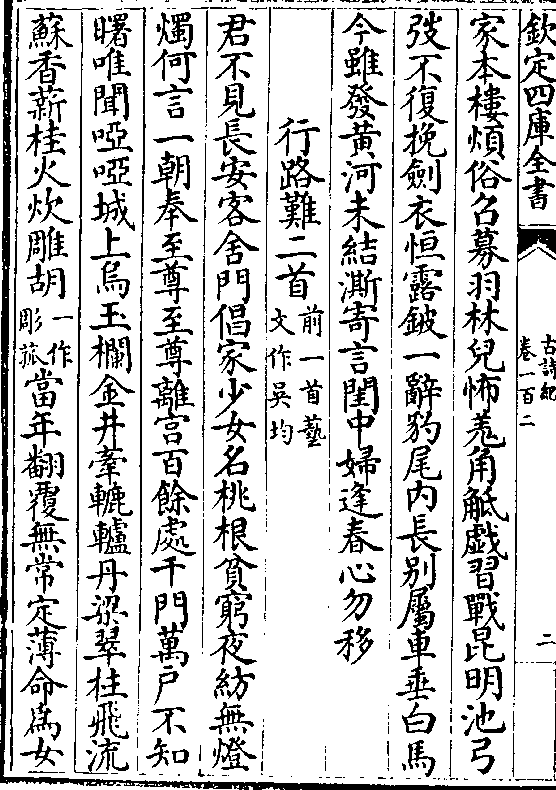 欽定四庫全書
古詩紀
卷一百二
二
家本樓煩俗召募羽林兒怖羌角觝戯習戰昆明池弓
弢不復挽劍衣恒露鈹一辭豹尾内長别屬車垂白馬
今雖發黄河未結澌寄言閨中婦逢春心勿移
行路難二首前一首藝文作吳均
君不見長安客舍門倡家少女名桃根貧窮夜紡無燈
燭何言一朝奉至尊至尊離宫百餘處千門萬户不知
曙唯聞啞啞城上烏玉欄金井牽轆轤丹梁翠柱飛流
蘇香薪桂火炊雕胡一作彫菰當年翻覆無常定薄命為女